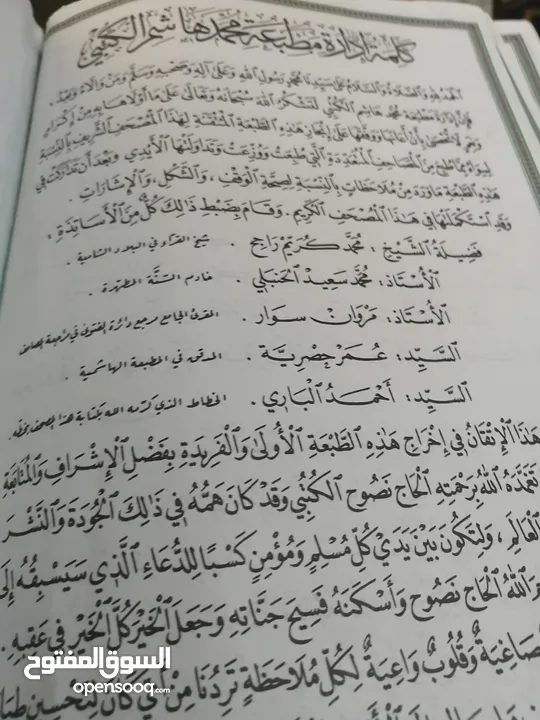 كلمة إدارة مطبعة محمد هاشم الكتبي
الحمد لله والصلاة والسلام على سيدنا محمد رسول الله وعلى آله وصحبه وسلم ومن والاه وبعد،
فإن إدارة مطبعة محمد هاشم الكتبي لتشكر الله سبحانه وتعالى على ما أولاها به من إكرام
ونعم لا تحصى بأن أعانها ووفقها على إنجاز هذه الطبعة المتقنة لهذا المصحف الشريف بالنسبة
لسواه مما طبع من المصاحف المتعددة التي طبعت ووزعت وتداولتها الأيدي وبعد أن تداركت في
هذه الطبعة ما ورد من ملاحظات بالنسبة لصحة الوقف، والشكل، والإشارات.
وقد استكملها في هذا المصحف الكريم. وقام بضبط ذلك كل من الأساتذة:
فضيلة الشيخ: محمد كريم راجح. شيخ القراء في البلاد الشامية.
الأستاذ: محمد سعيد الحنبلي. خادم السنة المطهرة.
الأستاذ: مروان سوار. المقرئ الجامع مرجع دائرة الفتوى في مراجعة المصاحف
السيد: عمر حصرية. المدقق في المطبعة الهاشمية.
السيد: أحمد الباري. الخطاط الذي كرمه الله بكتابة هذا المصحف بخطه.
هذا الإتقان في إخراج هذه الطبعة الأولى والفريدة بفضل الإشراف والمتابعة
تغمده الله برحمته الحاج نصوح الكتبي وقد كان همه في ذلك الجودة والنشر
العالم، ولتكون بين يدي كل مسلم ومؤمن كسبا للدعاء الذي سيسبقه إلى
الله الحاج نصوح وأسكنه فسيح جناته وجعل الخير كل الخير في عقبه.
صاغية وقلوب واعية لكل ملاحظة تردنا من أي كان لتحسين
السوق المفتوح
opensooq.com